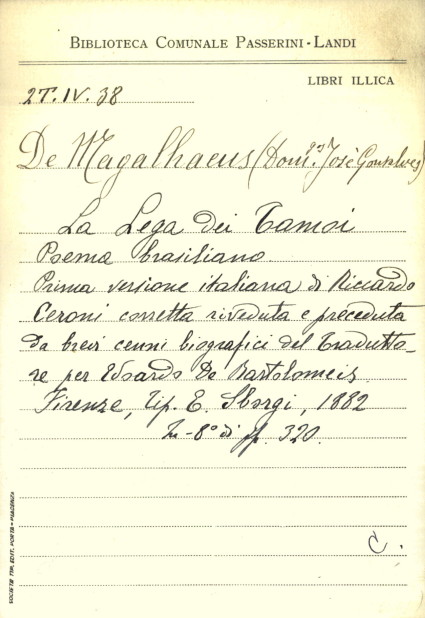 BIBLIOTECA COMUNALE PASSERINI-LANDI
LIBRI ILLICA
2T.IV.38
De Magalhaens (Dom.gos José Gonsalves)
La Lega dei Tamoi
Poema brasiliano
Prima versione italiana di Riccardo
Ceroni corretta riveduta e preceduta
da brevi cenni biografici del Tradutto-
re per Edoardo De Bartolomeis
Firenze, Tip. E. Sborgi, 1882
In-8° di pp. 320.
C.
SOCIETÀ TIP. EDIT. PORTA - PIACENZA